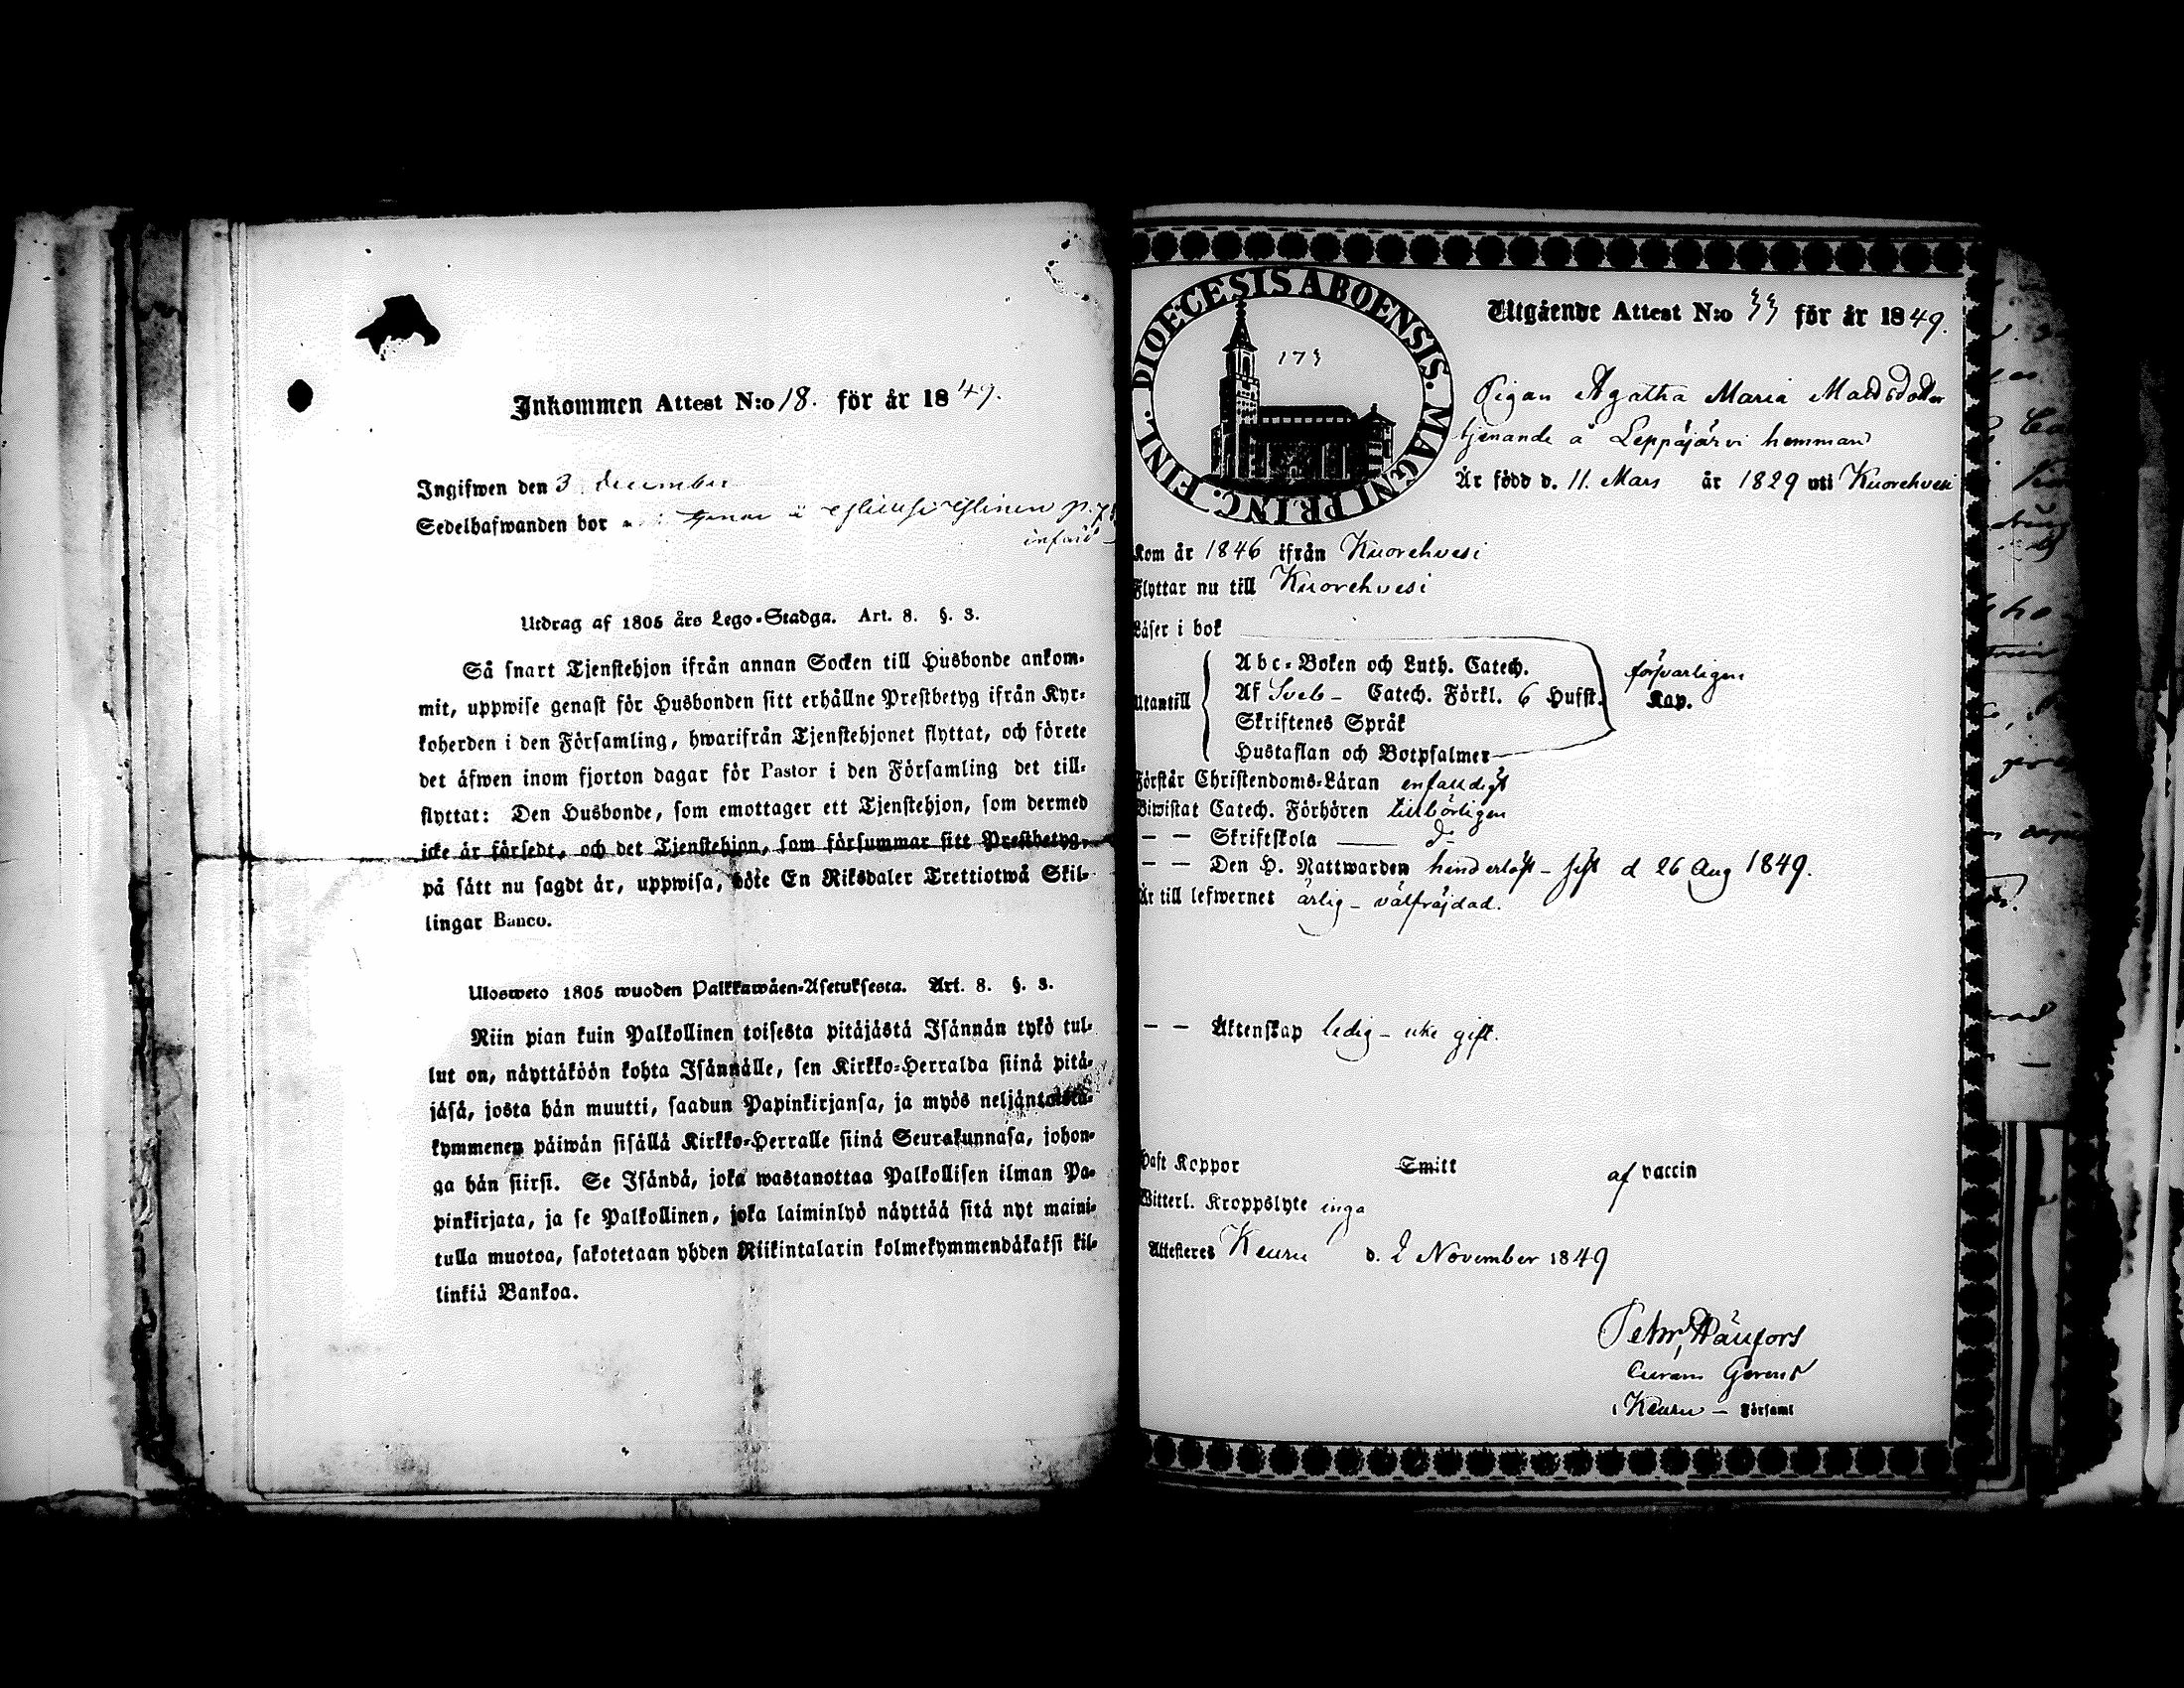 Inkommen Attest N:o 18. för år 1849.
Ingifwen den 3 december
Sedelhafwanden bor
Utdrag af 1805 års Lego-Stadga. Art. 8. §. 3.
Så snart Tjenstehjon ifrån annan Socken till Husbonde ankom-
mit, uppwise genast för Husbonden sitt erhållne Prestbetyg ifrån Kyr-
koherden i den Församling, hwarifrån Tjenstehjonet flyttat, och förete
det äfwen inom fjorton dagar för Pastor i den Församling det till-
flyttat: Den Husbonde, som emottager ett Tjenstehjon, som dermed
icke är försedt, och det Tjenstehjon, som försummar sitt Prestbetyg,
på sätt nu sagdt är, uppwisa, böte En Riksdaler Trettiotwå Skil-
lingar Banco.
Ulosweto 1805 wuoden Palkkawäen-Asetuksesta. Art. 8. §. 3.
Niin pian kuin Palkollinen toisesta pitäjästä Isännän tykö tul-
lut on, näyttäköön kohta Isännälle, sen Kirkko-Herralda siinä pitä-
jäsä, josta hän muutti, saadun Papinkirjansa, ja myös neljäntoista-
kymmenen päiwän sisällä Kirkko-Herralle siinä Seurakunnasa, johon-
ga hän siirsi. Se Isändä, joka wastanottaa Palkollisen ilman Pa-
pinkirjata, ja se Palkollinen, joka laiminlyö näyttää sitä nyt maini-
tulla muotoa, sakotetaan yhden Riikintalarin kolmekymmendäkaksi kil-
linkiä Bankoa.
FINL. DIOECESIS ABOENSIS. MAGNI PRINC.
173
Utgående Attest N:o 33 för år 1849.
Pigan Agatha Maria Mattsdotter
tjenande å Leppäjärvi hemman
Är född d. 11. Mars år 1829 uti Kuorehvesi
Kom år 1846 ifrån Kuorehvesi
Flyttar nu till Kuorehvesi
Läser i bok
Abc-Boken och Luth. Catech. försvarligen
Utantill Af Sveb- Catech. Förkl. 6 Hufst. Kap.
Skriftenes Språk
Hustaflan och Botpsalmer
Förstår Christendoms-Läran enfaldigt
Biwistat Catech. Förhören tillbörligen
— — Skriftskola d:o
— — Den H. Nattwarden d 26 Aug 1849.
Är till lefwernet ärlig - välfräjdad.
— — Äktenskap ledig - icke gift.
Haft Koppor Smitt af vaccin
Witterl. Kroppslyte inga
Attesteres Keuru d. 2 November 1849
Curam Gerens
i Keuru — Församl